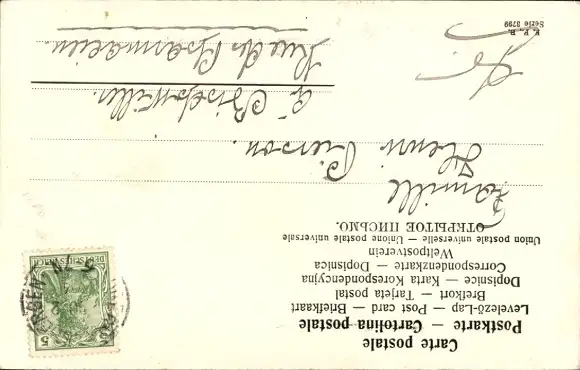 Carte postale
Postkarte — Cartolina postale
Levelező-Lap — Post card — Briefkaart
Brefkort — Tarjeta postal
Dopisnice — Karta Korespondencyjna
Correspondenzkarte — Dopisnica
Weltpostverein
Union postale universelle — Unione postale universale
ОТКРЫТОЕ ПИСЬМО.
Famille
Henri Pierson.
à Bischwiller.
Rue des
Serie 3799
DEUTSCHES REICH
5